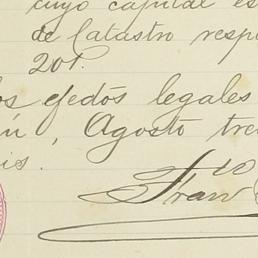 cuyo capital es
de Catastro resp
201.
los efectos legales
Agosto tre
is.
Fran